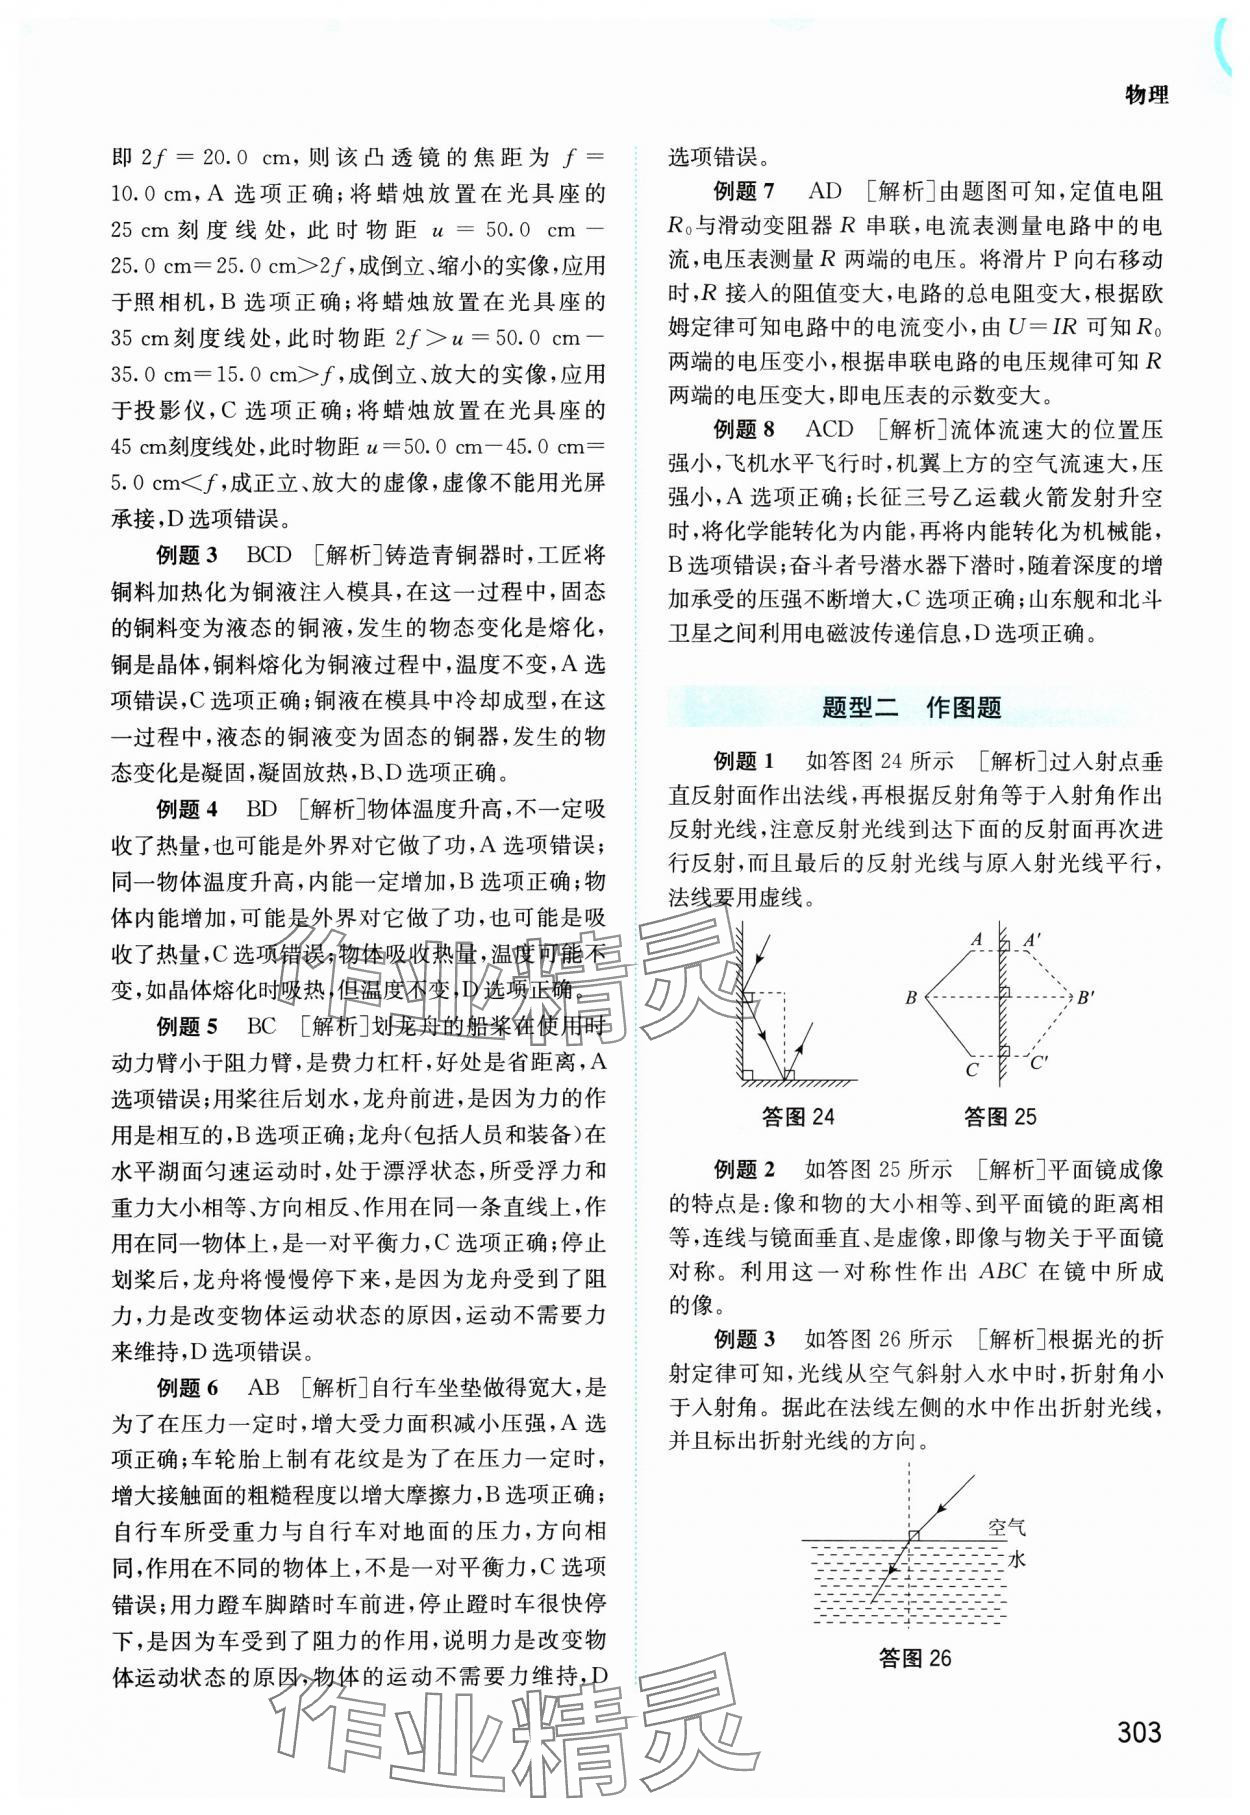 物理
即 2f = 20.0 cm,则该凸透镜的焦距为 f =
10.0 cm,A 选项正确;将蜡烛放置在光具座的
25 cm 刻度线处,此时物距 u = 50.0 cm -
25.0 cm=25.0 cm>2f,成倒立、缩小的实像,应用
于照相机,B 选项正确;将蜡烛放置在光具座的
35 cm刻度线处,此时物距 2f>u=50.0 cm-
35.0 cm=15.0 cm>f,成倒立、放大的实像,应用
于投影仪,C 选项正确;将蜡烛放置在光具座的
45 cm刻度线处,此时物距 u=50.0 cm-45.0 cm=
5.0 cm<f,成正立、放大的虚像,虚像不能用光屏
承接,D选项错误。
例题 3 BCD [解析]铸造青铜器时,工匠将
铜料加热化为铜液注入模具,在这一过程中,固态
的铜料变为液态的铜液,发生的物态变化是熔化,
铜是晶体,铜料熔化为铜液过程中,温度不变,A 选
项错误,C选项正确;铜液在模具中冷却成型,在这
一过程中,液态的铜液变为固态的铜器,发生的物
态变化是凝固,凝固放热,B、D选项正确。
例题 4 BD [解析]物体温度升高,不一定吸
收了热量,也可能是外界对它做了功,A选项错误;
同一物体温度升高,内能一定增加,B选项正确;物
体内能增加,可能是外界对它做了功,也可能是吸
收了热量,C选项错误;物体吸收热量,温度可能不
变,如晶体熔化时吸热,但温度不变,D选项正确。
例题 5 BC [解析]划龙舟的船桨在使用时
动力臂小于阻力臂,是费力杠杆,好处是省距离,A
选项错误;用桨往后划水,龙舟前进,是因为力的作
用是相互的,B选项正确;龙舟(包括人员和装备)在
水平湖面匀速运动时,处于漂浮状态,所受浮力和
重力大小相等、方向相反、作用在同一条直线上,作
用在同一物体上,是一对平衡力,C选项正确;停止
划桨后,龙舟将慢慢停下来,是因为龙舟受到了阻
力,力是改变物体运动状态的原因,运动不需要力
来维持,D选项错误。
例题 6 AB [解析]自行车坐垫做得宽大,是
为了在压力一定时,增大受力面积减小压强,A 选
项正确;车轮胎上制有花纹是为了在压力一定时,
增大接触面的粗糙程度以增大摩擦力,B选项正确;
自行车所受重力与自行车对地面的压力,方向相
同,作用在不同的物体上,不是一对平衡力,C选项
错误;用力蹬车脚踏时车前进,停止蹬时车很快停
下,是因为车受到了阻力的作用,说明力是改变物
体运动状态的原因,物体的运动不需要力维持,D
选项错误。
例题 7 AD [解析]由题图可知,定值电阻
R₀与滑动变阻器 R 串联,电流表测量电路中的电
流,电压表测量 R 两端的电压。将滑片 P 向右移动
时,R 接入的阻值变大,电路的总电阻变大,根据欧
姆定律可知电路中的电流变小,由 U=IR 可知 R₀
两端的电压变小,根据串联电路的电压规律可知 R
两端的电压变大,即电压表的示数变大。
例题 8 ACD [解析]流体流速大的位置压
强小,飞机水平飞行时,机翼上方的空气流速大,压
强小,A 选项正确;长征三号乙运载火箭发射升空
时,将化学能转化为内能,再将内能转化为机械能,
B选项错误;奋斗者号潜水器下潜时,随着深度的增
加承受的压强不断增大,C选项正确;山东舰和北斗
卫星之间利用电磁波传递信息,D选项正确。
题型二 作图题
例题 1 如答图 24 所示 [解析]过入射点垂
直反射面作出法线,再根据反射角等于入射角作出
反射光线,注意反射光线到达下面的反射面再次进
行反射,而且最后的反射光线与原入射光线平行,
法线要用虚线。
A A′
B B′
C C′
答图 24 答图 25
例题 2 如答图 25 所示 [解析]平面镜成像
的特点是:像和物的大小相等、到平面镜的距离相
等,连线与镜面垂直、是虚像,即像与物关于平面镜
对称。利用这一对称性作出 ABC 在镜中所成
的像。
例题 3 如答图 26 所示 [解析]根据光的折
射定律可知,光线从空气斜射入水中时,折射角小
于入射角。据此在法线左侧的水中作出折射光线,
并且标出折射光线的方向。
空气
水
答图 26
303
作业精灵
作业精灵